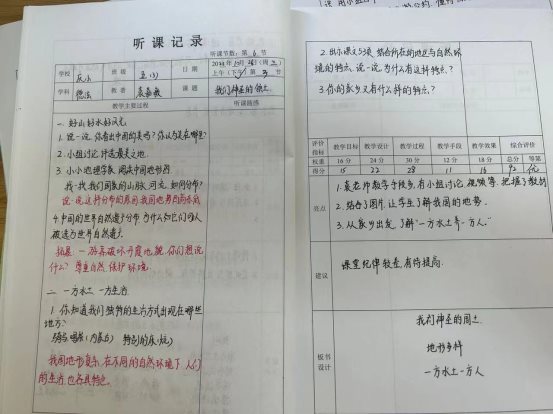 听课记录
听课节数：第 6 节
学校
班级
五(3)
日期
上午（下午）第 3 节
学科
德法
教者
课题
我们神圣的领土
教学主要过程
听课随感
一、好山好水好风光
1. 说一说，你看出中国的美吗？你认为美在哪里？
2. 小组讨论，评选最美之地。
3. 小小地理学家，阅读中国地形图
找一找我们国家的山脉、河流，如何分布？
说一说这样分布的原因，我国地势西高东低
4. 中国的世界自然遗产分布，为什么如它们的人
被选为世界自然遗产
拓展：一游客破坏丹霞地貌，你们想说
什么？尊重自然，保护环境
二、一方水土 一方生活
1. 你知道我们独特的生活方式出现在哪些
地方？
骑马 喝茶（内蒙古） 特别的床（炕）
我国地形复杂，在不同的自然环境下，人们
的生活也各具特色。
2. 出示课文53页，结合所在的地区与自然环
境的特点，说一说，为什么有这样特点？
3. 你的家乡又有什么样的特点？
评价指标
教学目标
教学设计
教学过程
教学手段
教学效果
综合评价
权重
16分
24分
30分
12分
18分
总分
等第
得分
15
22
28
11
16
92
优
亮点
1. 袁老师教学手段多，有小组讨论，视频等，把握了教材
2. 结合了图片，让学生了解我国的地势。
3. 从家乡出发，了解“一方水土养一方人”。
建议
课堂纪律较差，有待提高。
板书设计
我们神圣的国土
地形多样
一方水土一方人